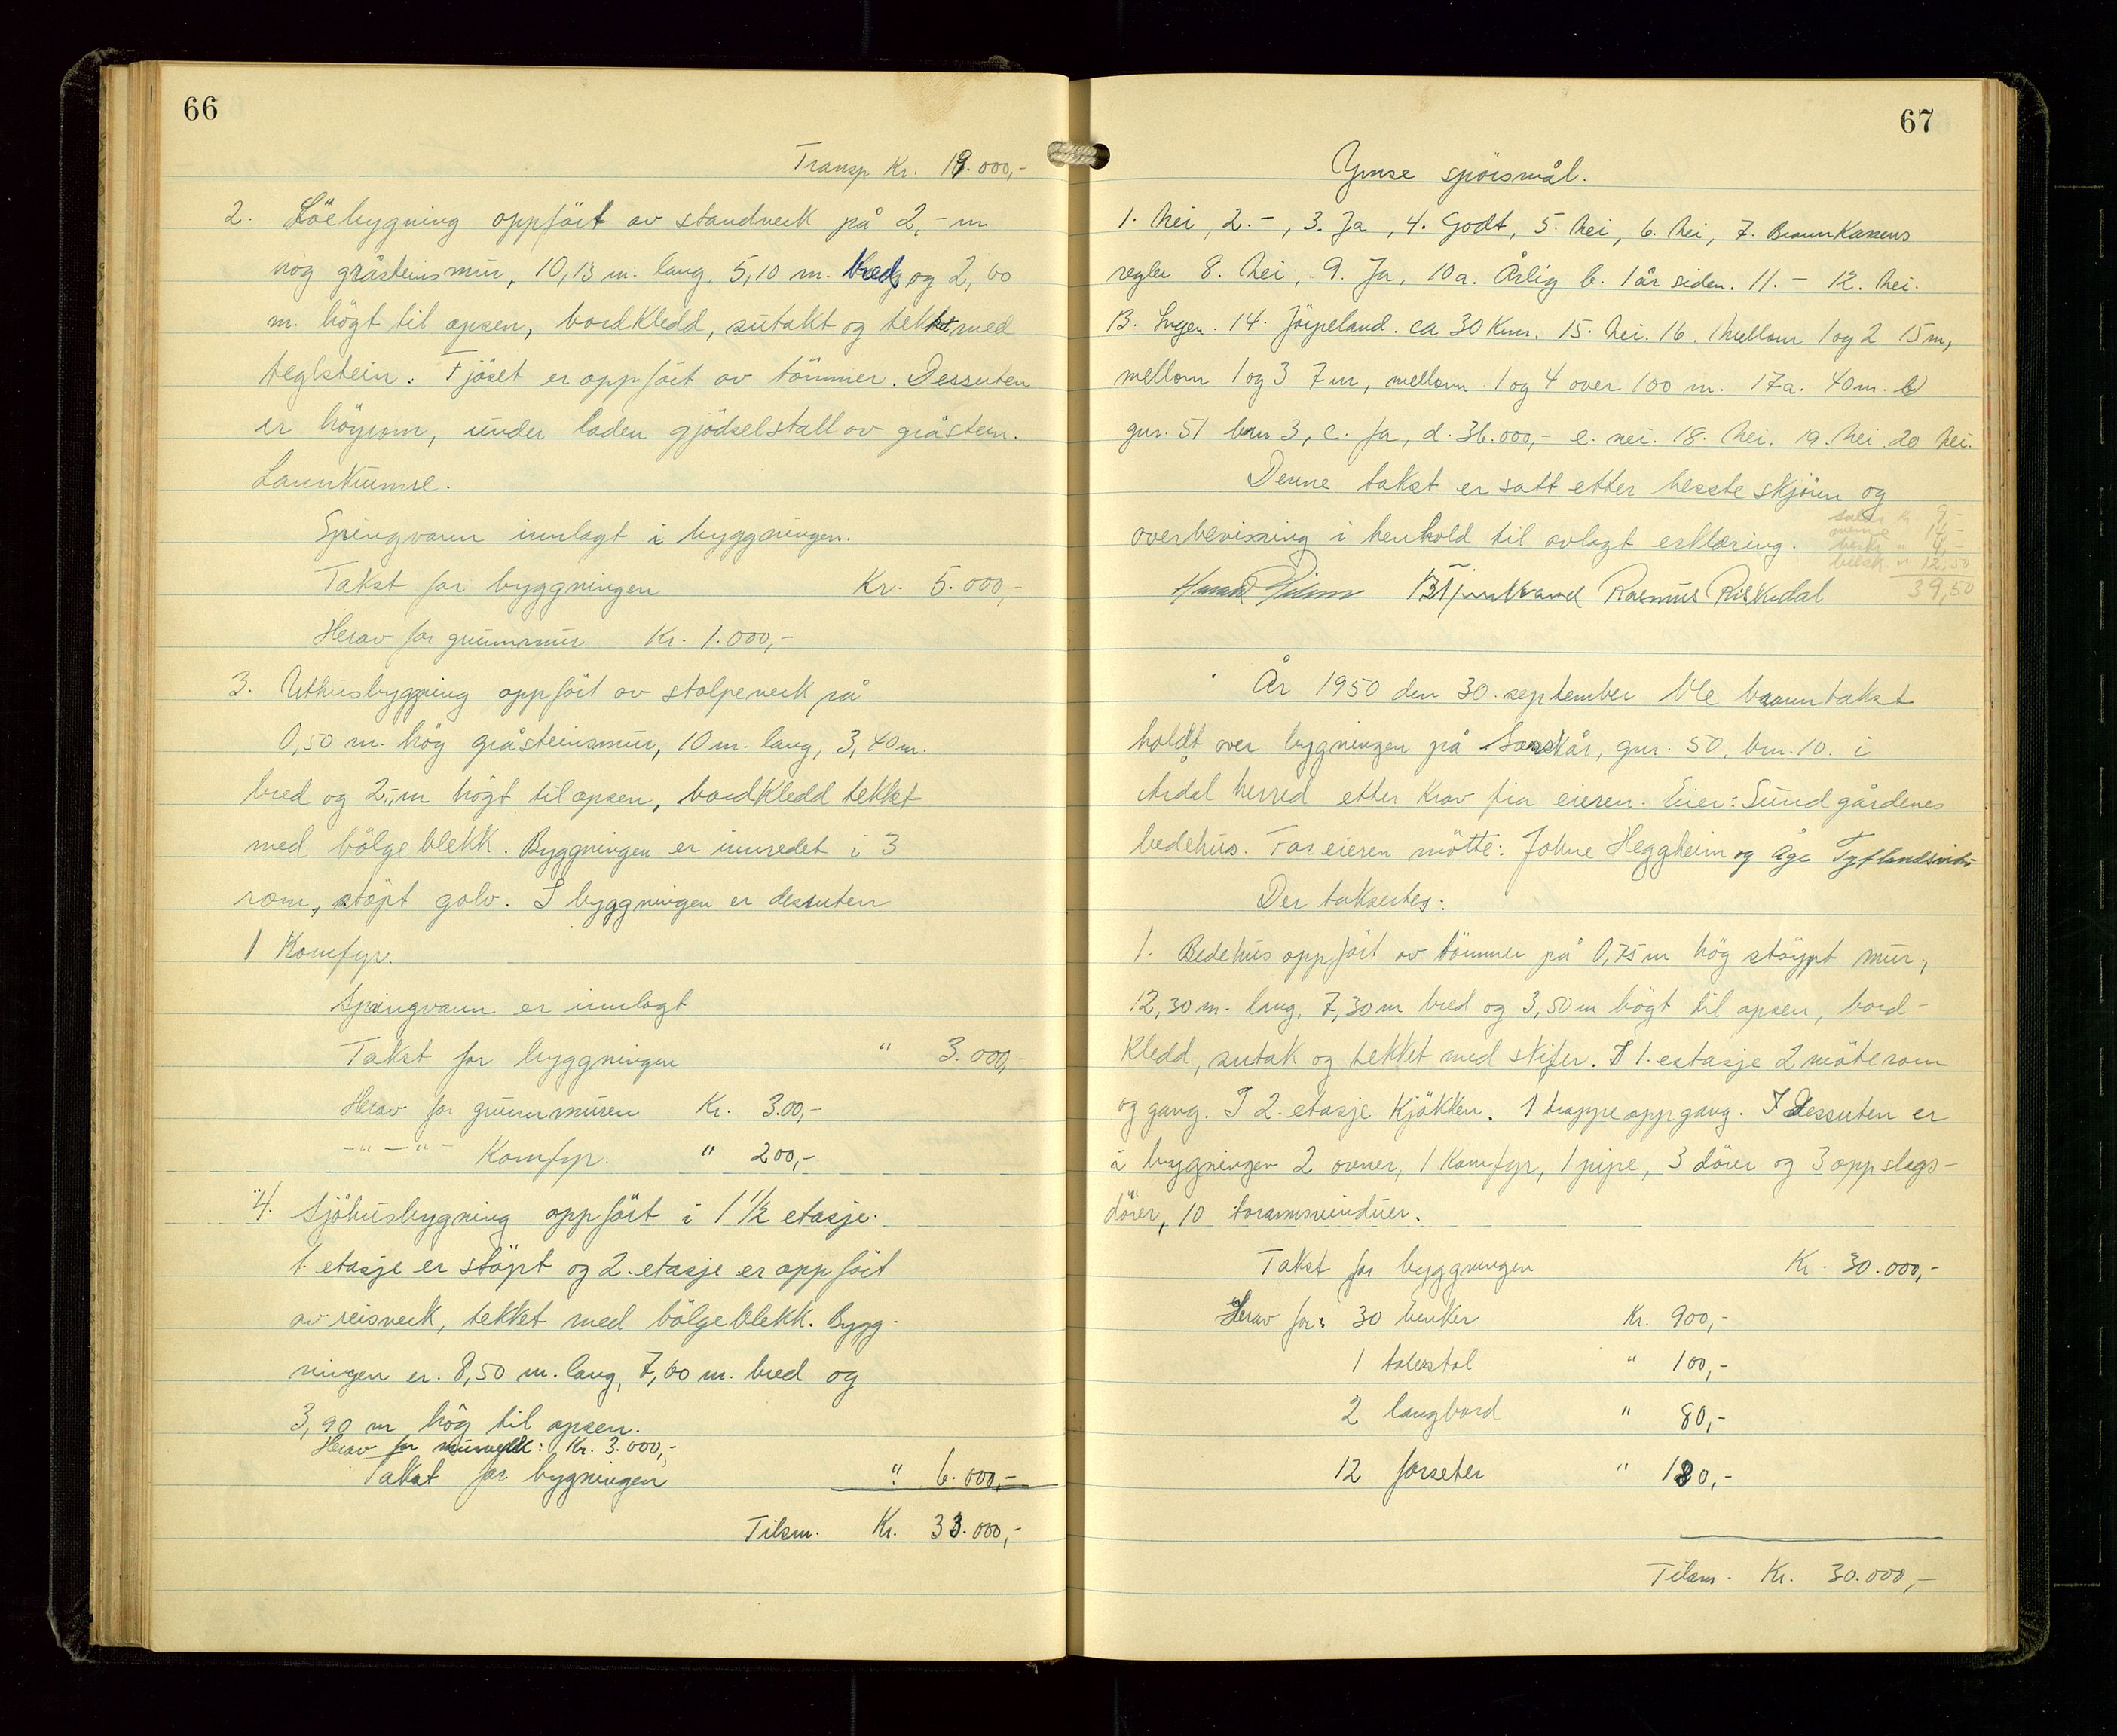 66
Transp Kr. 19.000,-
2. Löebygning oppfört av standverk på 2,- m
hög gråsteinsmur, 10,13 m. lang, 5,10 m. bred og 2,60
m. högt til opsen, bordkledd, sutakt og tekket med
teglstein. Fjöset er oppfört av tömmer. Dessuten
er höyrom, under laden gjödselstall av gråstein.
Lannkumme.
Springvann innlagt i byggningen.
Takst for byggningen Kr. 5.000,-
Herav for grunnmur Kr. 1.000,-
3. Uthusbyggning oppfört av stolpeverk på
0,50 m. hög gråsteinsmur, 10 m. lang, 3,40 m.
bred og 2,- m högt til opsen, bordkledd tekket
med bölgeblekk. Byggningen er innredet i 3
rom, stöpt golv. I byggningen er dessuten
1 Komfyr.
Springvann er innlagt
Takst for byggningen " 3.000,-
Herav for grunnmuren Kr. 3.00,-
-"-"- Komfyr. " 200,-
4. Sjöhusbygning oppfört i 1 1/2 etasje.
1. etasje er stöpt og 2. etasje er oppfört
av reisverk, tekket med bölgeblekk. Bygg-
ningen er 8,50 m. lang, 7,60 m. bred og
3,90 m hög til opsen.
Herav for murverk: Kr. 3.000,-
Takst for bygningen " 6.000,-
Tilsm. Kr. 33.000,-
67
Ymse spörsmål.
1. Nei, 2. -, 3. Ja, 4. Godt, 5. Nei, 6. Nei, 7. Brannkassens
regler 8. Nei, 9. Ja, 10a. Årlig b. 1 år siden. 11. - 12. Nei.
13. Ingen. 14. Jörpeland. ca 30 Km. 15. Nei. 16. Mellom 1 og 2 15 m,
mellom 1 og 3 7 m, mellom 1 og 4 over 100 m. 17a. 40 m. b)
gnr. 51 bnr 3, c. Ja, d. 36.000,- e. nei. 18. Nei. 19. Nei 20 Nei.
Denne takst er satt etter beste skjönn og
overbevisning i henhold til avlagt erklæring.
9,-
14,-
4,-
12,50
39,50
Rasmus Riskedal
År 1950 den 30. september ble branntakst
holdt over bygningen på gnr. 50, bnr. 10. i
Årdal herred etter krav fra eieren. Eier: Sundgårdenes
bedehus. For eieren mötte: Johne Heggheim og Åge
Der taksertes:
1. Bedehus oppfört av tömmer på 0,75 m hög stöypt mur,
12,30 m. lang, 7,30 m bred og 3,50 m högt til opsen, bord-
kledd, sutak og tekket med skifer. I 1. estasje 2 möterom
og gang. I 2. etasje kjökken. 1 trappeoppgang. Dessuten er
i bygningen 2 ovner, 1 Komfyr, 1 pipe, 3 dörer og 3 oppslags-
dörer, 10 toramsvinduer.
Takst for byggningen Kr. 30.000,-
Herav for: 30 benker Kr. 900,-
1 talerstol " 100,-
2 langbord " 80,-
12 forseter " 180,-
Tilsm. Kr. 30.000,-